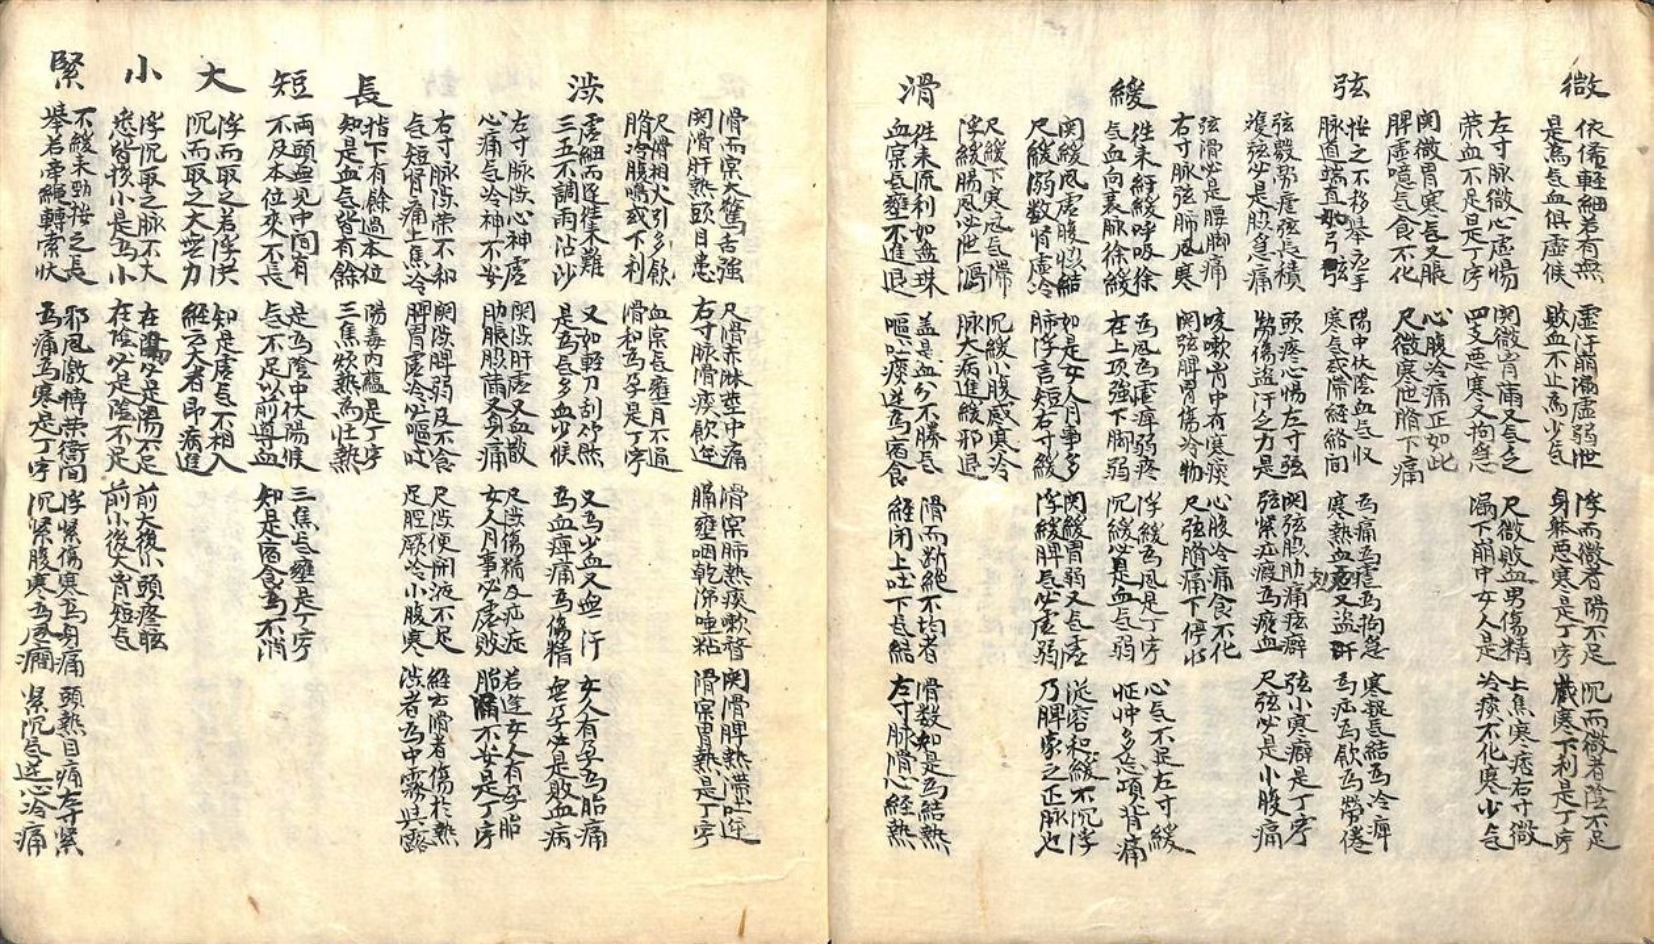 微
依俙輕細若有無
是為气血俱虛候
虛汗崩漏虛弱泄
敗血不止為少气
浮而微者陽不足
身躰惡寒是丁寧
沉而微者陰不足
臓寒下利是丁寧
左寸脉微心虛惕
荣血不足是丁寧
関微胃痛又气乏
四支悪寒又拘急
尺微敗血男傷精
漏下崩中女人是
上焦寒痞右寸微
冷痰不化寒少气
関微胃寒長又脹
脾虛噫气食不化
心腹冷痛正如此
尺微寒泄臍下痛
弦
按之不移挙応手
脉道端直如弓弦
陽中伏陰血气収
寒气或滞経絡間
為痛為瘧為拘急
寒熱血虛又盗汗
寒凝气結為冷痺
為疝為飲為勞倦
弦數勞瘧弦長積
雙弦必是股急痛
頭疼心惕左寸弦
勞傷盗汗乏力是
関弦脇肋痛痃癖
弦緊疝瘕為瘀血
弦小寒癖是丁寧
尺弦必是小腹痛
弦滑必是腰脚痛
右寸脉弦肺風寒
咳嗽胃中有寒痰
関弦脾胃傷冷物
心腹冷痛食不化
尺弦臍痛下停水
緩
往来紆緩呼吸徐
气血向裏脉徐緩
為風為虛痺弱疼
在上項強下脚弱
浮緩為風是丁寧
沉緩必是血气弱
心气不足左寸緩
怔忡多忘項背痛
関緩風虛腹惱結
尺緩溺数腎虛冷
如是女人月事多
肺浮言短右寸緩
関緩胃弱又气虛
浮緩脾气必虛弱
從容和緩不沉浮
乃脾家之正脉也
尺緩下寒風气滞
浮緩腸風必泄瀉
沉緩小腹感寒冷
脉大病進緩邪退
滑
往来流利如盤珠
血実气壅不進退
盖是血分不勝气
嘔吐痰逆為宿食
滑而断絶不均者
経閉上吐下气結
滑数知是為結熱
左寸脉滑心経熱
滑而実大驚舌強
関滑肝熱頭目患
尺滑赤淋莖中痛
右寸脉滑痰飲逆
滑実肺熱痰嗽瞀
膈壅咽乾涕唾粘
関滑脾熱滞吐逆
滑実胃熱是丁寧
尺滑相火引多飲
臍冷腹鳴或下利
血実气壅月不通
滑和為孕是丁寧
渋
虛細而遅往来難
三五不調雨沾沙
又如軽刀刮竹然
是為气多血少候
又為少血又無汗
為血痺痛為傷精
女人有孕為胎痛
無孕必是敗血病
左寸脉渋心神虛
心痛气冷神不安
関渋肝虛又血散
肋脹股満又身痛
尺渋傷精及疝症
女人月事必虛敗
若逢女人有孕胎
胎漏不安是丁寧
右寸脉渋荣不和
气短胃痛上焦冷
関渋脾弱及不食
脾胃虛冷必嘔吐
尺渋便閉液不足
足脛厥冷小腹寒
経云滑者傷於熱
渋者為中霧與露
長
指下有餘過本位
知是血气皆有餘
陽毒内蘊是丁寧
三焦煩熱為壮熱
短
両頭無見中間有
不及本位来不長
是為陰中伏陽候
气不足以前導血
三焦气壅是丁寧
知是宿食為不消
大
浮而取之若浮洪
沉而取之大無力
知是虛气不相入
経云大者即病進
小
浮沉取之脉不大
悉皆損小是為小
在陽必是陽不足
在陰必是陰不足
前大後小頭疼眩
前小後大胃短气
緊
不緩来勁按之長
挙若牽繩轉索状
邪風激搏荣衛間
為痛為寒是丁寧
浮緊傷寒為身痛
沉緊腹寒為風癇
頭熱目痛左寸緊
緊沉气逆心冷痛